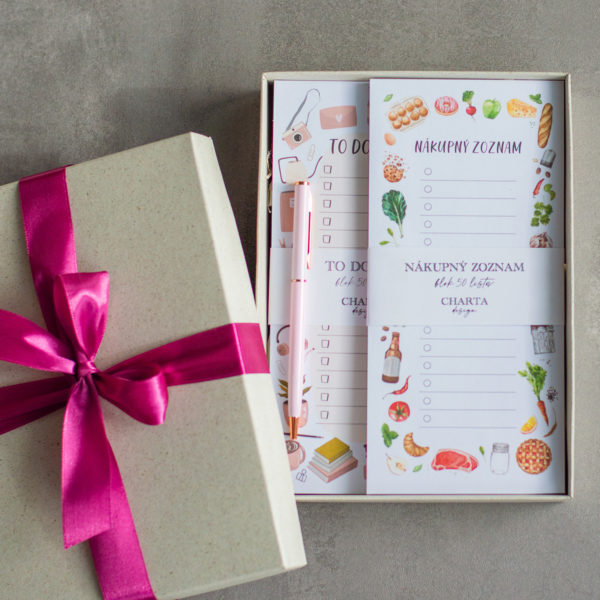 TO DO
TO DO
CHARTA
design
NÁKUPNÝ ZOZNAM
NÁKUPNÝ ZOZNAM
blok 50 listov
CHARTA
design